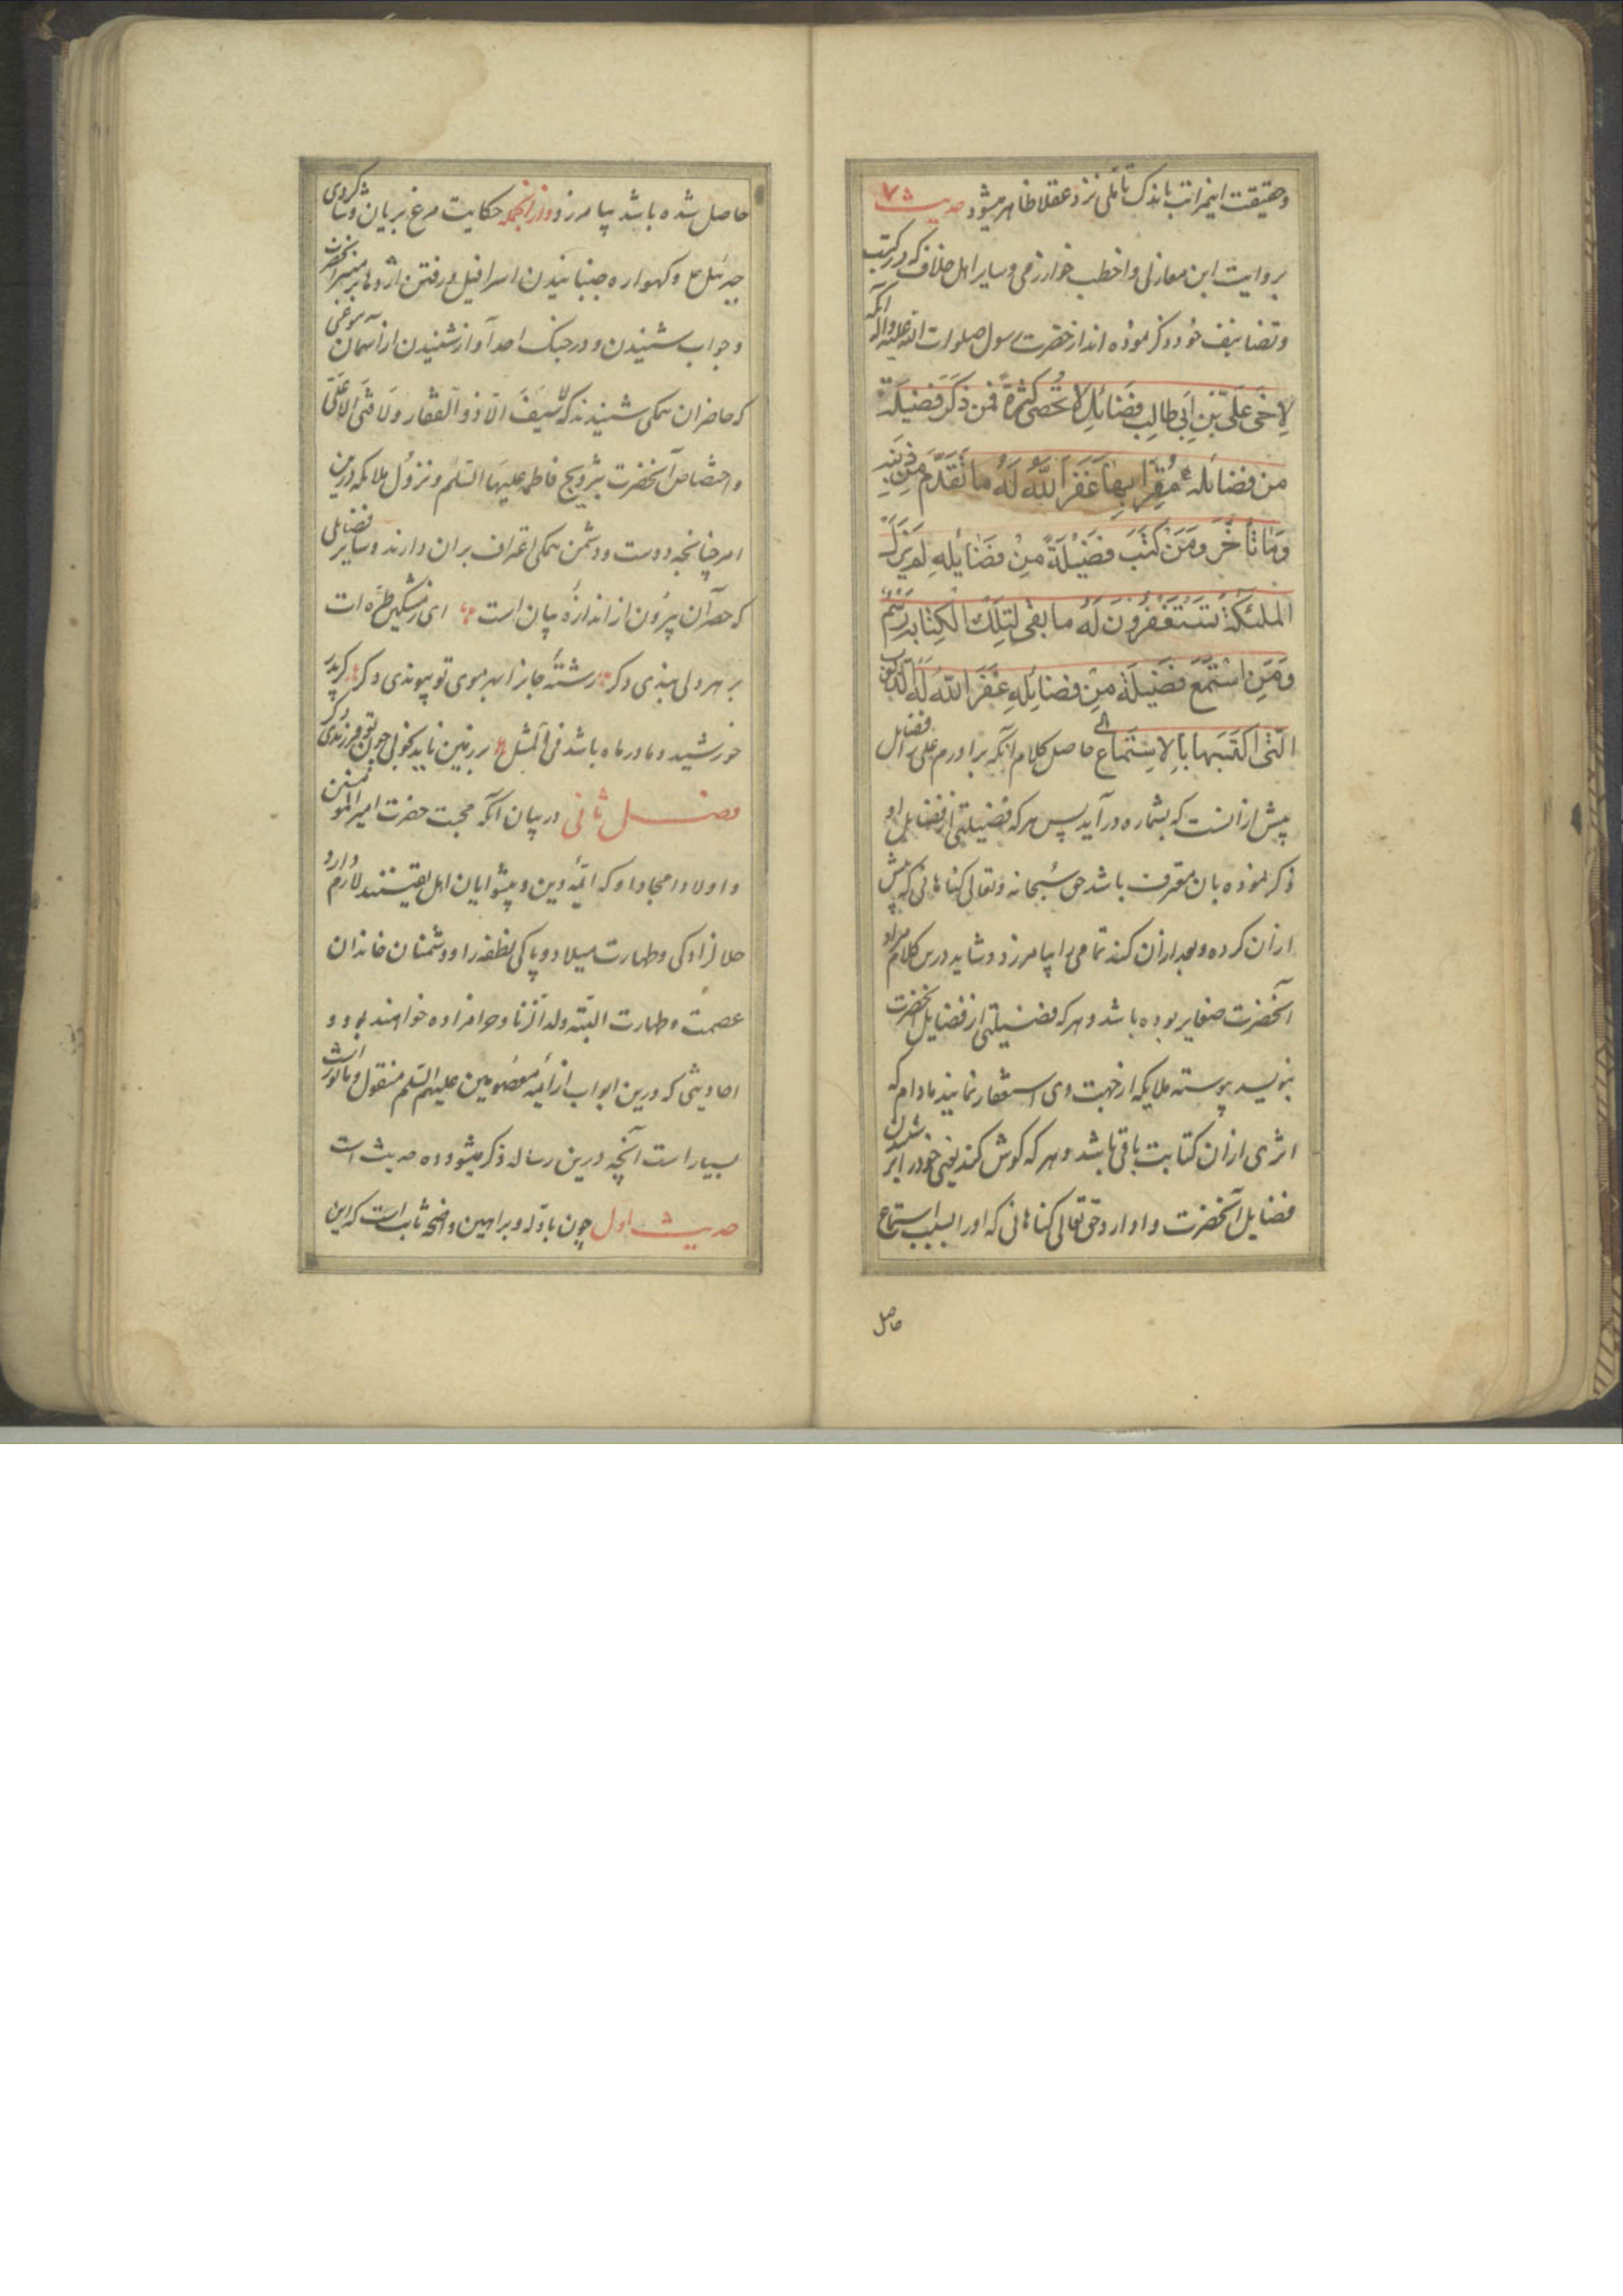 وحقیقت اینمراتب باندک تأملی نزد عقلا ظاهر میشود حدیث ۷
بروایت ابن مغازلی واخطب خوارزمی وسایر اهل خلاف که در کتب
وتصانیف خود ذکر نموده اند از حضرت رسول صلوات الله علیه وآله آنکه
لِاَخی عَلَیِّ بْنِ اَبی طالِبٍ فَضائِل لا تُحْصی کَثْرَةً فَمَن ذَکَرَ فَضیلَةً
مِن فضائله مُقِرّاً بِها غَفَرَ اللّهُ لَهُ ما تَقَدَّمَ مِن ذَنبِهِ
وَمَا تَأَخَّرَ وَمَن کَتَبَ فَضیلَةً مِنْ فَضائِلِهِ لَم یَزَل
المَلئِکَةُ تَستَغفِرُونَ لَهُ ما بَقی لِتِلکَ الکِتابَه رَسمٌ
وَمَنِ اسْتَمَعَ فَضیلَةً مِن فَضائِلِهِ غَفَرَ اللّهُ لَهُ الذنوب
الَّتی اکْتَسَبَها بِالاِستِماع حاصل کلام آنکه برادرم علی را فضایل
پیش از آنست که بشماره درآید پس هر که فضیلتی از فضایل او
ذکر نموده بان معترف باشد حق سبحانه وتعالی کناهانی که پیش
ازان کرده وبعد ازان کند تمامی را بیامرزد وشاید درین کلام مراد
آنحضرت صغایر بوده باشد وهر که فضیلتی از فضایل آنحضرت
بنویسد پیوسته ملایکه از جهت وی استغفار نمایند مادام که
اثری ازان کتابت باقی باشد وهر که کوش کند یعنی خود را بر شنیدن
فضایل آنحضرت وادارد حق تعالی کناهانی که او را بسبب استماع
حاصل
حاصل شده باشد بیامرزد وازانجمله حکایت مرغ بریان وشاکردی
جبرئیل ع وکهواره جنبانیدن اسرافیل ورفتن اژدها بر منبر آنحضرت
وجواب شنیدن ودر جنک احد آواز شنیدن از آسمان
که حاضران همکی شنیدند که لا سَیفَ الّا ذو الفقار ولا فَتی الا عَلیّ
واختصاص آنحضرت بتزویج فاطمه علیها السّلم ونزول ملایکه درین
امر چنانچه دوست ودشمن همکی اعتراف بران دارند وسایر فضایلی
که حصر آن بیرون از اندازه بیان است ای ز مشکین طرّه ات
بر هر دلی بندی دکر رشتهٔ جانرا بهر موی تو پیوندی دکر کر پدر
خورشید ومادر ماه باشد فی المثل بر زمین ناید بخوبی چون تو فرزندی دکر
فصل ثانی در بیان آنکه محبت حضرت امیرالمؤمنین
واولاد امجاد او که ائمّه دین وپیشوایان اهل یقینند لازم دارد
حلال زادکی وطهارت میلاد وپاکی نطفه را ودشمنان خاندان
عصمت وطهارت البتّه ولد الزنا وحرامزاده خواهند بود و
احادیثی که درین ابواب از ائمه معصومین علیهم السّلم منقول وماثور است
بسیار است آنچه درین رساله ذکر میشود ده حدیث است
حدیث اول چون بادلّه وبراهین واضحه ثابت است که این